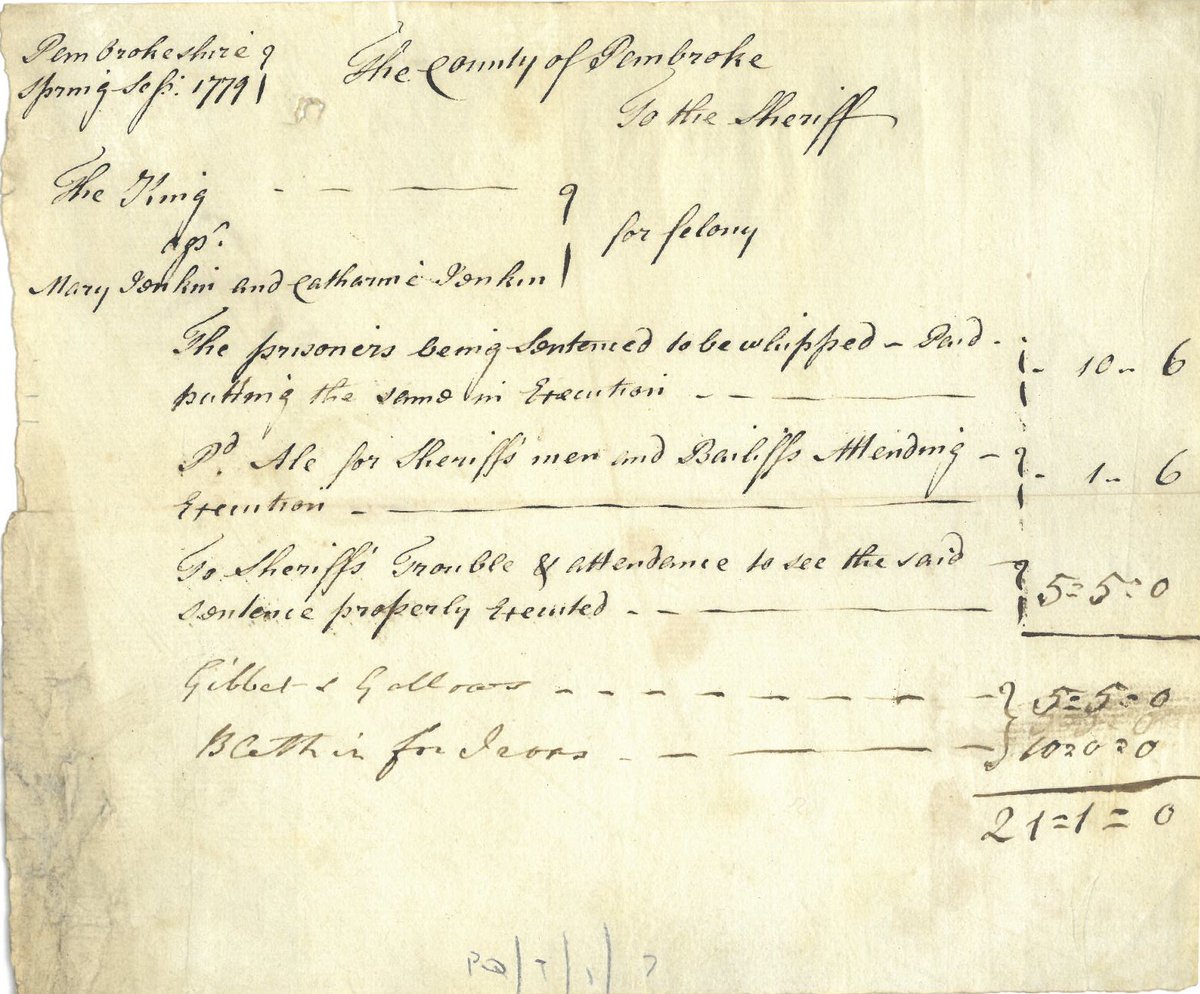 Pembrokeshire
Spring Sess: 1779
The County of Pembroke
To the Sheriff
The King
agst.
Mary Jenkin and Catharine Jenkin
for felony
The prisoners being Sentenced to be whipped - Paid - 10 - 6
putting the same in Execution
Pd. Ale for Sheriff's men and Bailiffs Attending - 1 - 6
Execution
To Sheriff's Trouble & attendance to see the said
sentence properly Executed 5 = 5 = 0
Gibbet & Gallows 5 = 5 = 0
for Irons 10 = 0 = 0
21 = 1 = 0